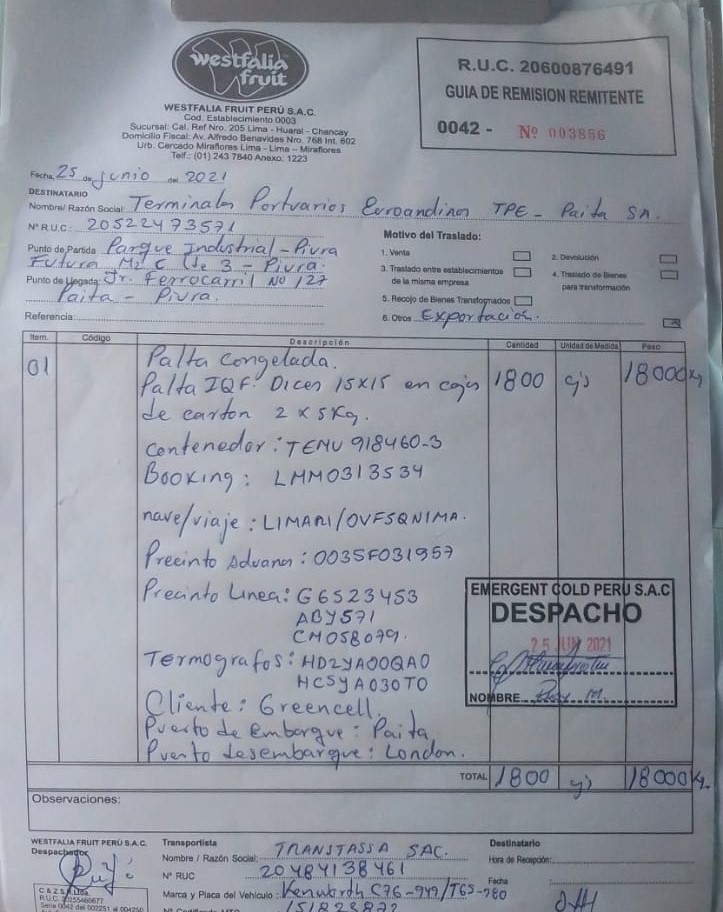 westfalia
fruit
WESTFALIA FRUIT PERÚ S.A.C.
Cod. Establecimiento 0003
Sucursal: Cal. Ref Nro. 205 Lima - Huaral - Chancay
Domicilio Fiscal: Av. Alfredo Benavides Nro. 768 Int. 602
Urb. Cercado Miraflores Lima - Lima - Miraflores
Telf.: (01) 243 7840 Anexo: 1223
R.U.C. 20600876491
GUIA DE REMISION REMITENTE
0042 - Nº 003856
Fecha, 25 de Junio del 2021
DESTINATARIO
Nombre/ Razón Social: Terminales Portuarios Euroandinos TPE - Paita SA.
Nº R.U.C.: 20522473571
Punto de Partida Parque Industrial - Piura
Futura Mz C lte 3 - Piura.
Punto de Llegada: Jr. Ferrocarril Nº 127
Paita - Piura.
Referencia:
Motivo del Traslado:
1. Venta
2. Devolución
3. Traslado entre establecimientos
de la misma empresa
4. Traslado de Bienes
para transformación
5. Recojo de Bienes Transformados
6. Otros Exportación.
Item. Código Descripción Cantidad Unidad de Medida Peso
01 Palta Congelada.
Palta IQF: Dices 15x15 en cajas 1800 cjs 18000Kg
de carton 2 x 5Kg.
Contenedor: TEMU 918460-3
Booking: LMM0313534
nave/viaje: LIMARI/OVFSQNIMA.
Precinto Aduana: 0035F031957
Precinto Linea: G6523453
ABY571
CM058079.
Termografos: HD2YA00QA0
HCSYA030T0
Cliente: Greencell.
Puerto de Embarque: Paita
Puerto desembarque: London.
EMERGENT COLD PERU S.A.C
DESPACHO
25 JUN 2021
NOMBRE
TOTAL 1800 cjs 18000Kg.
Observaciones:
WESTFALIA FRUIT PERÚ S.A.C.
Despachador
Transportista
Nombre / Razón Social: TRANSTASSA SAC.
Nº RUC 20484138461
Marca y Placa del Vehículo: Kenworth C76-949/T6S-980
151828872
Destinatario
Hora de Recepción:
Fecha
R.U.C. 20555460677
Serie 0042 del 002251 al 004250